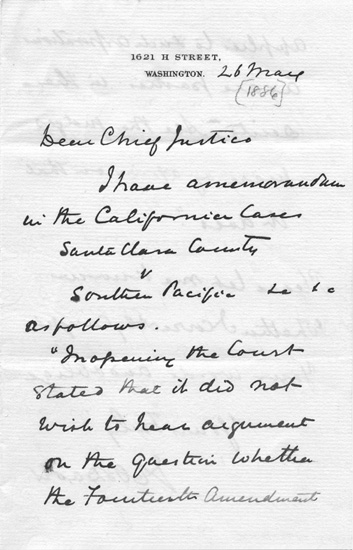 1621 H STREET,
WASHINGTON.
26 May
[1886]
Dear Chief Justice
I have a memorandum
in the California Cases
Santa Clara County
v
Southern Pacific &c &c
as follows.
"In opening the Court
stated that it did not
wish to hear argument
on the question whether
the Fourteenth Amendment